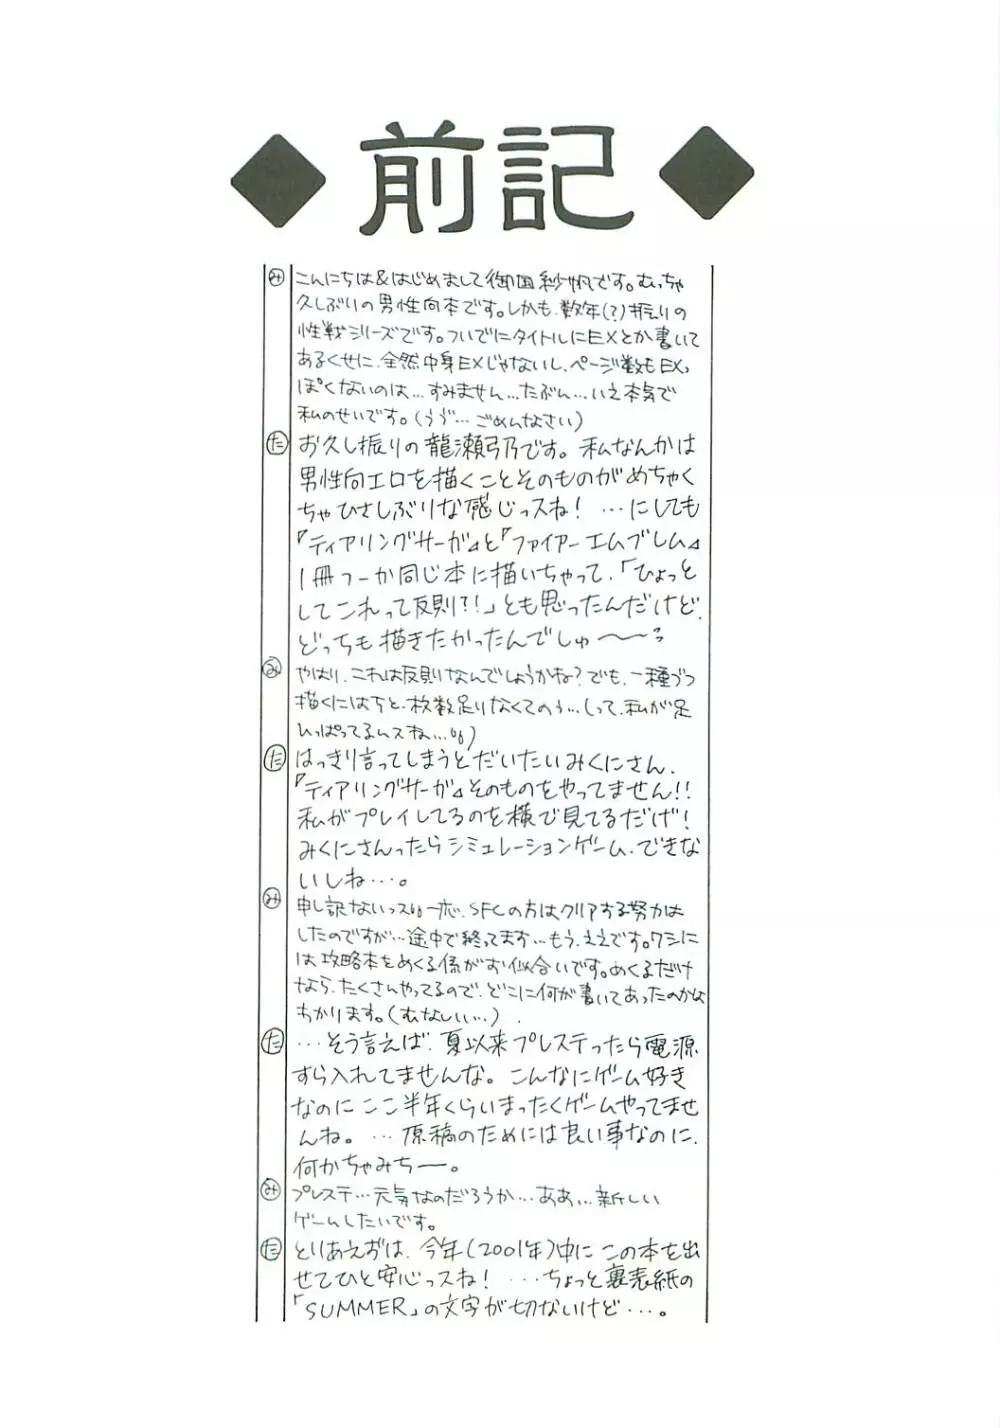 ◆前記◆
み こんにちは&はじめまして御国紗帆です。むっちゃ
久しぶりの男性向本です。しかも、数年(?)振りの
性戦シリーズです。ついでにタイトルにEXとか書いて
あるくせに、全然中身EXじゃないし、ページ数もEXっ
ぽくないのは…すみません…たぶん…いえ本気で
私のせいです。(うゔ…ごめんなさい)
た お久し振りの龍瀬弓乃です。私なんかは
男性向エロを描くことそのものがめちゃく
ちゃひさしぶりな感じっスね! …にしても
『ティアリングサーガ』と『ファイアーエムブレム』
1冊つーか同じ本に描いちゃって、「ひょっと
してこれって反則?!」とも思ったんだけど、
どっちも描きたかったんでしゅ〜〜っ
み やはり、これは反則なんでしょうかね?でも、一種づつ
描くにはちと、枚数足りなくてのう…(って、私が足
ひっぱってるんスね…)
た はっきり言ってしまうとだいたいみくにさん、
『ティアリングサーガ』そのものをやってません!!
私がプレイしてるのを横で見てるだけ!
みくにさんったらシミュレーションゲーム、できな
いしね…。
み 申し訳ないっス 一応、SFCの方はクリアする努力は
したのですが…途中で終ってます…もう、ええです。ワシに
は攻略本をめくる係がお似合いです。めくるだけ
なら、たくさんやってるので、どこに何が書いてあったのかな
わかります。(むなしい…)
た …そう言えば、夏以来プレステったら電源
すら入れてませんな。こんなにゲーム好き
なのにここ半年くらいまったくゲームやってませ
んね。…原稿のためには良い事なのに、
何かちゃみちー。
み プレステ…元気なのだろうか…ああ…新しい
ゲームしたいです。
た とりあえずは、今年(2001年)中にこの本を出
せてひと安心っスね! …ちょっと裏表紙の
「SUMMER」の文字が切ないけど…。